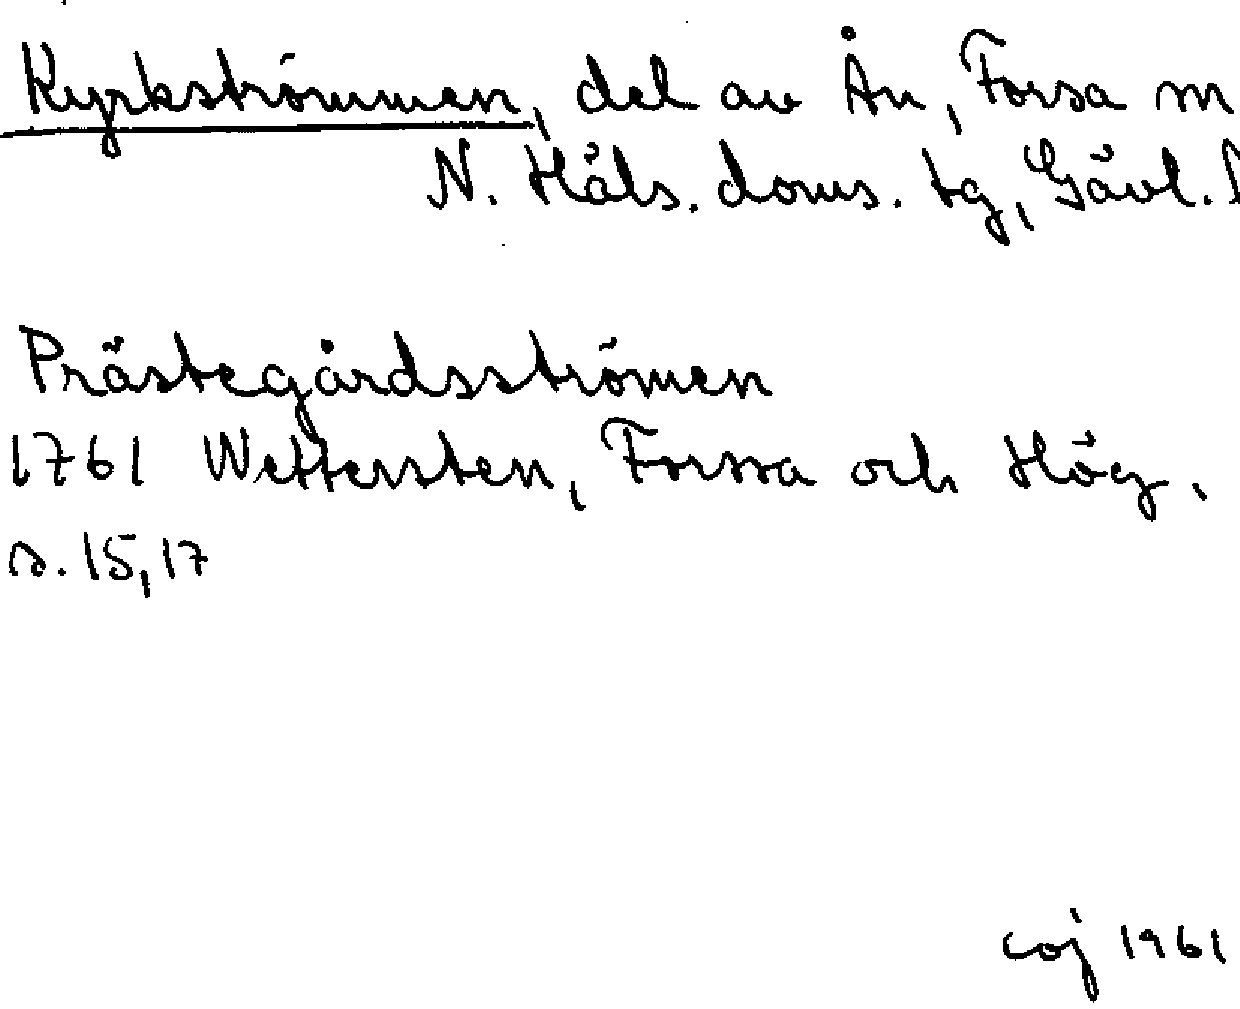 Kyrkströmmen, del av Ån, Forsa sn
N. Häls. doms. tg, Gävl. l
Prästegårdsströmen
1761 Wettersten, Forssa och Hög,
s. 15,17
coj 1961